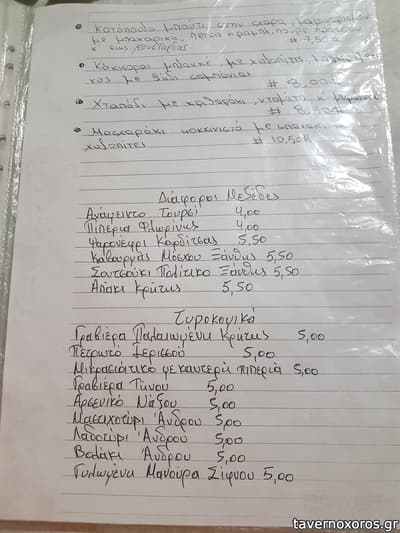 • Κοτόπουλο μπούτι στην σχάρα, μαριναρισμένο
με μπαχαρικά, πέστο
κ' σως μουστάρδας # 7,50 #
• Κόκκορας με χυλοπίτες,
νος με ξύδι # 8,00 #
• Χταπόδι με κριθαράκι, ντομάτα κ'
# 8,50 #
• Μοσχαράκι κοκκινιστό με
χυλοπίτες # 10,50 #
Διάφοροι Μεζέδες
Ανάμεικτο Τουρσί 4,00
Πιπεριά Φλωρίνης 4,00
Ψαρονέφρι Καρδίτσας 5,50
Καβουρμάς Μόσχου Ξάνθης 5,50
Σουτζούκι Πολίτικο Ξάνθης 5,50
Απάκι Κρήτης 5,50
Τυροκομικά
Γραβιέρα Παλαιωμένη Κρήτης 5,00
Πετρωτό Ξερισσού 5,00
Μικρασιάτικο με καυτερή πιπεριά 5,00
Γραβιέρα Τήνου 5,00
Αρσενικό Νάξου 5,00
Μαστιχοτύρι Άνδρου 5,00
Λαδοτύρι Άνδρου 5,00
Βολάκι Άνδρου 5,00
Γυλωμένη Μανούρα Σίφνου 5,00
tavernoxoros.gr